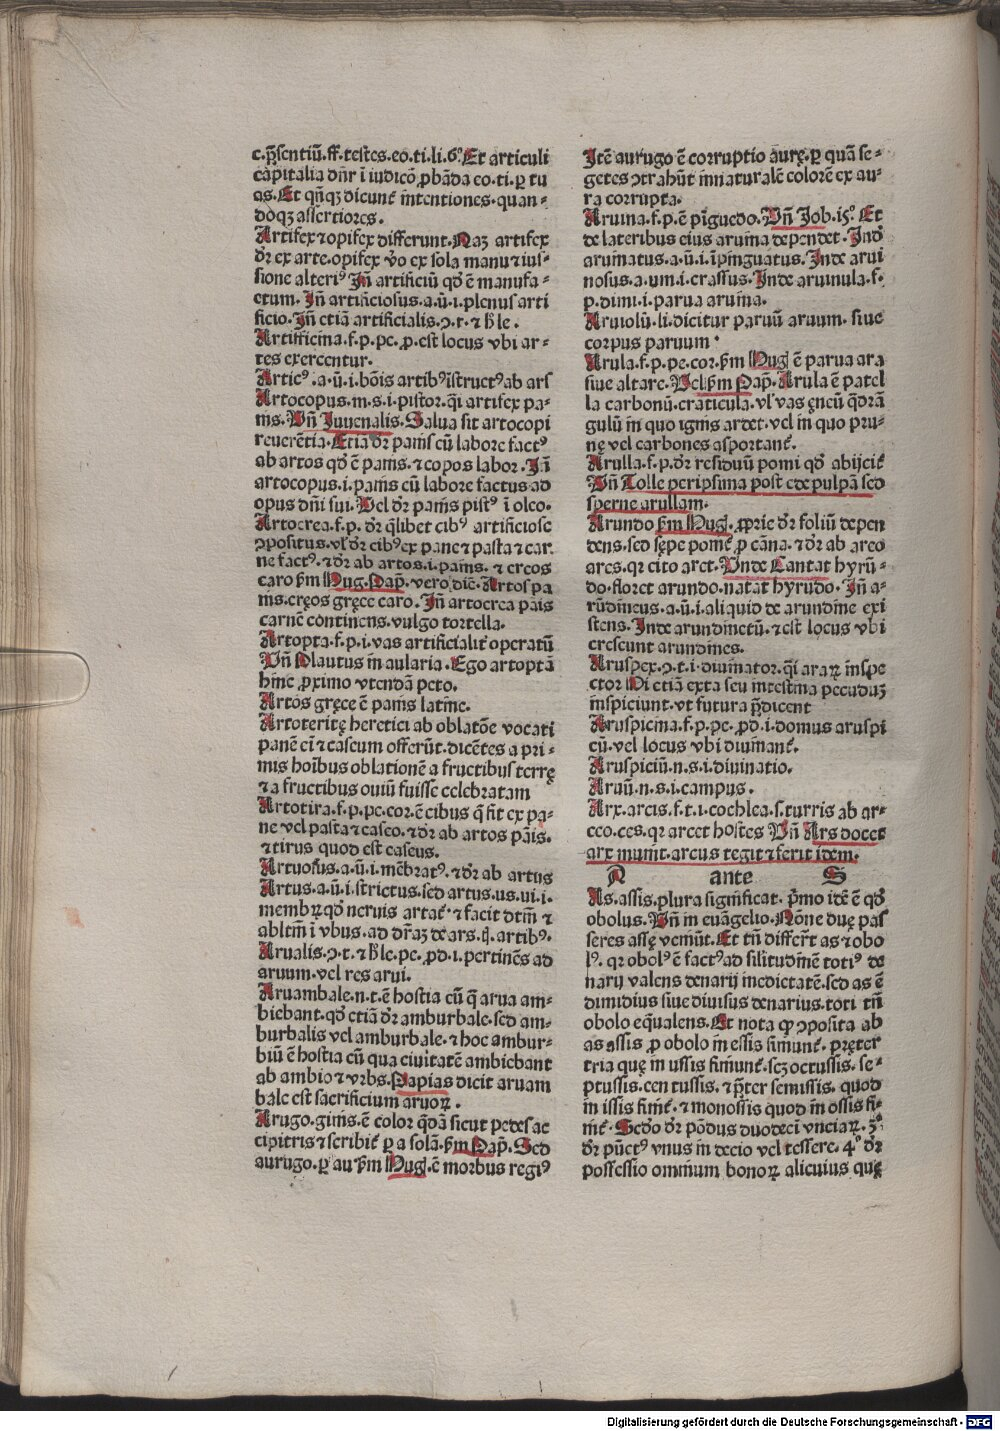 c.p̄sentiū.ff.testes.eo.ti.li.6º Et articuli
capitalia dn̄r ī iudicō ꝓbāda eo.ti.ꝑ tu
as. Et qn̄qꝫ dicunt̄ intentiones.quan-
doqꝫ assertiores.
Artifex ⁊ opifex differunt. Naꝫ artifex
dr̄ ex arte.opifex v̄o ex sola manu ⁊ ius-
sione alteriꝰ Jn̄ artificiū qd̄ ē manufa-
ctum. Jn̄ artificiosus.a.ū.i.plenus arti
ficio. Jn̄ etiā artificialis.ↄ.t.⁊ h̄ le.
Artifficina.f.p.pe.ꝓ.est locus vbi ar-
tes exercentur.
Articꝰ.a.ū.i.bōis artibꝰ īstructꝰ ab ars
Artocopus.m.s.i.pistor.qi artifex pa-
nis. Vn̄ Juuenalis. Salua sit artocopi
reuerētia. Etiā dr̄ panis cū labore factꝰ
ab artos qd̄ ē panis.⁊ copos labor. Jn̄
artocopus.i.panis cū labore factus ad
opus dn̄i sui. Vel dr̄ panis pistꝰ ī oleo.
Artocrea.f.p. dr̄ qlibet cibꝰ artificiose
ↄpositus.vl̓ dr̄ cibꝰ ex pane ⁊ pasta ⁊ car
ne factꝰ.⁊ dr̄ ab artos.i.panis. ⁊ creos
caro ẜm Hug. Pap̄. vero diē. Artos pa
nis.creos gręce caro. Jn̄ artocrea pāis
carnē continens.vulgo tortella.
Artopta.f.p.i.vas artificialit̄ operatū
Vn̄ Plautus in aularia. Ego artoptā
hinc ꝓximo vtendā peto.
Artos gręce ē panis latine.
Artoteritę heretici ab oblatōe vocati
panē eī ⁊ caseum offerūt.dicētes a pri-
mis hoībus oblationē a fructibus terrę
⁊ a fructibus ouiū fuisse celebratam
Artotira.f.p.pe.cor.ē cibus q̄ fit ex pa-
ne vel pasta ⁊ caseo.⁊ dr̄ ab artos pāis.
⁊ tirus quod est caseus.
Artuosus.a.ū.i.mēbratꝰ.⁊ dr̄ ab artus
Artus.a.ū.i.strictus.sed artus.us.ui.i.
membꝝ qd̄ neruis artat̄.⁊ facit dtm̄ ⁊
abltm̄ ī vbus.ad dr̄aꝫ de ars.q̄.artibꝰ.
Arualis.ↄ.t.⁊ h̄ le.pe.ꝓd.i.pertinēs ad
aruum.vel res arui.
Aruambale.n.t.ē hostia cū q̄ arua am-
biebant.qd̄ etiā dr̄ amburbale.sed am-
burbalis vel amburbale.⁊ hoc ambur-
biū ē hostia cū qua ciuitatē ambiebant
ab ambio ⁊ vrbs. Papias dicit aruam
bale est sacrificium aruoꝝ.
Arugo.ginis.ē color qdā sicut pedes ac
cipitris ⁊ scribit̄ ꝑ a solā.ẜm Pap̄. Sed
aurugo.ꝑ au ẜm Hug.ē morbus regiꝰ
Jtē aurugo ē corruptio aurę.ꝑ quā se-
getes ↄtrahūt innaturalē colorē ex au-
ra corrupta.
Aruina.f.p.ē pīguedo. Vn̄ Job.15º Et
de lateribus eius aruina dependet. Jnd̓
aruinatus.a.ū.i.īpinguatus. Jnde arui
nosus.a.um.i.crassus. Jnde aruinula.f.
p.dimi.i.parua aruina.
Aruiolū.li.dicitur paruū aruum.siue
corpus paruum.
Arula.f.p.pe.cor.ẜm Hug ē parua ara
siue altare. Vel ẜm Pap̄. Arula ē patel
la carbonū.craticula.vl̓ vas ęneū qdrā
gulū in quo ignis ardet.vel in quo pru-
nę vel carbones asportant̄.
Arulla.f.p.dr̄ residuū pomi qd̄ abijcit̄
Vn̄ Tolle peripsima post ede pulpā sed
sperne arullam.
Arundo ẜm Hug. ꝓprie dr̄ foliū depen
dens.sed sępe ponit̄ ꝓ cāna.⁊ dr̄ ab areo
ares.qꝛ cito aret. Vnde Cantat hyrū-
do.floret arundo.natat hyrudo. Jn̄ a-
rūdineus.a.ū.i.aliquid de arundine exi
stens. Jnde arundinetū.⁊ est locus vbi
crescunt arundines.
Aruspex.ↄ.t.i.diuinator.qi araꝝ inspe
ctor Hi etiā exta seu intestina pecuduꝫ
inspiciunt.vt futura p̄dicent
Aruspicina.f.p.pe.ꝓd.i.domus aruspi
cū.vel locus vbi diuinant̄.
Aruspiciū.n.s.i.diuinatio.
Aruū.n.s.i.campus.
Arx.arcis.f.t.i.cochlea.s.turris ab ar-
ceo.ces.qꝛ arcet hostes Vn̄ Ars docet
arx munit.arcus tegit ⁊ ferit idem.
A ante S
As.assis.plura significat. p̄mo idē ē qd̓
obolus. Vn̄ in euāgelio. Nōne duę pas
seres assę veniūt. Et tn̄ differt̄ as ⁊ obo
lꝰ. qꝛ obolꝰ ē factꝰ ad silitudinē totiꝰ de
narij valens denarij medietatē.sed as ē
dimidius siue diuisus denarius.toti tn̄
obolo eq̄ualens. Et nota qꝙ ↄposita ab
as assis ꝓ obolo in essis finiunt̄. pręter
tria quę in ussis finiunt̄.scꝫ octussis. se-
ptussis.centussis. ⁊ p̄ter semissis. quod
in issis finit̄. ⁊ monossis quod in ossis fi-
nit̄. Scdo dr̄ pōdus duodecī vnciaꝝ. 3º
dr̄ pūctꝰ vnus in decio vel tessere. 4º dr̄
possessio omnium bonoꝝ alicuius quę
Digitalisierung gefördert durch die Deutsche Forschungsgemeinschaft - DFG